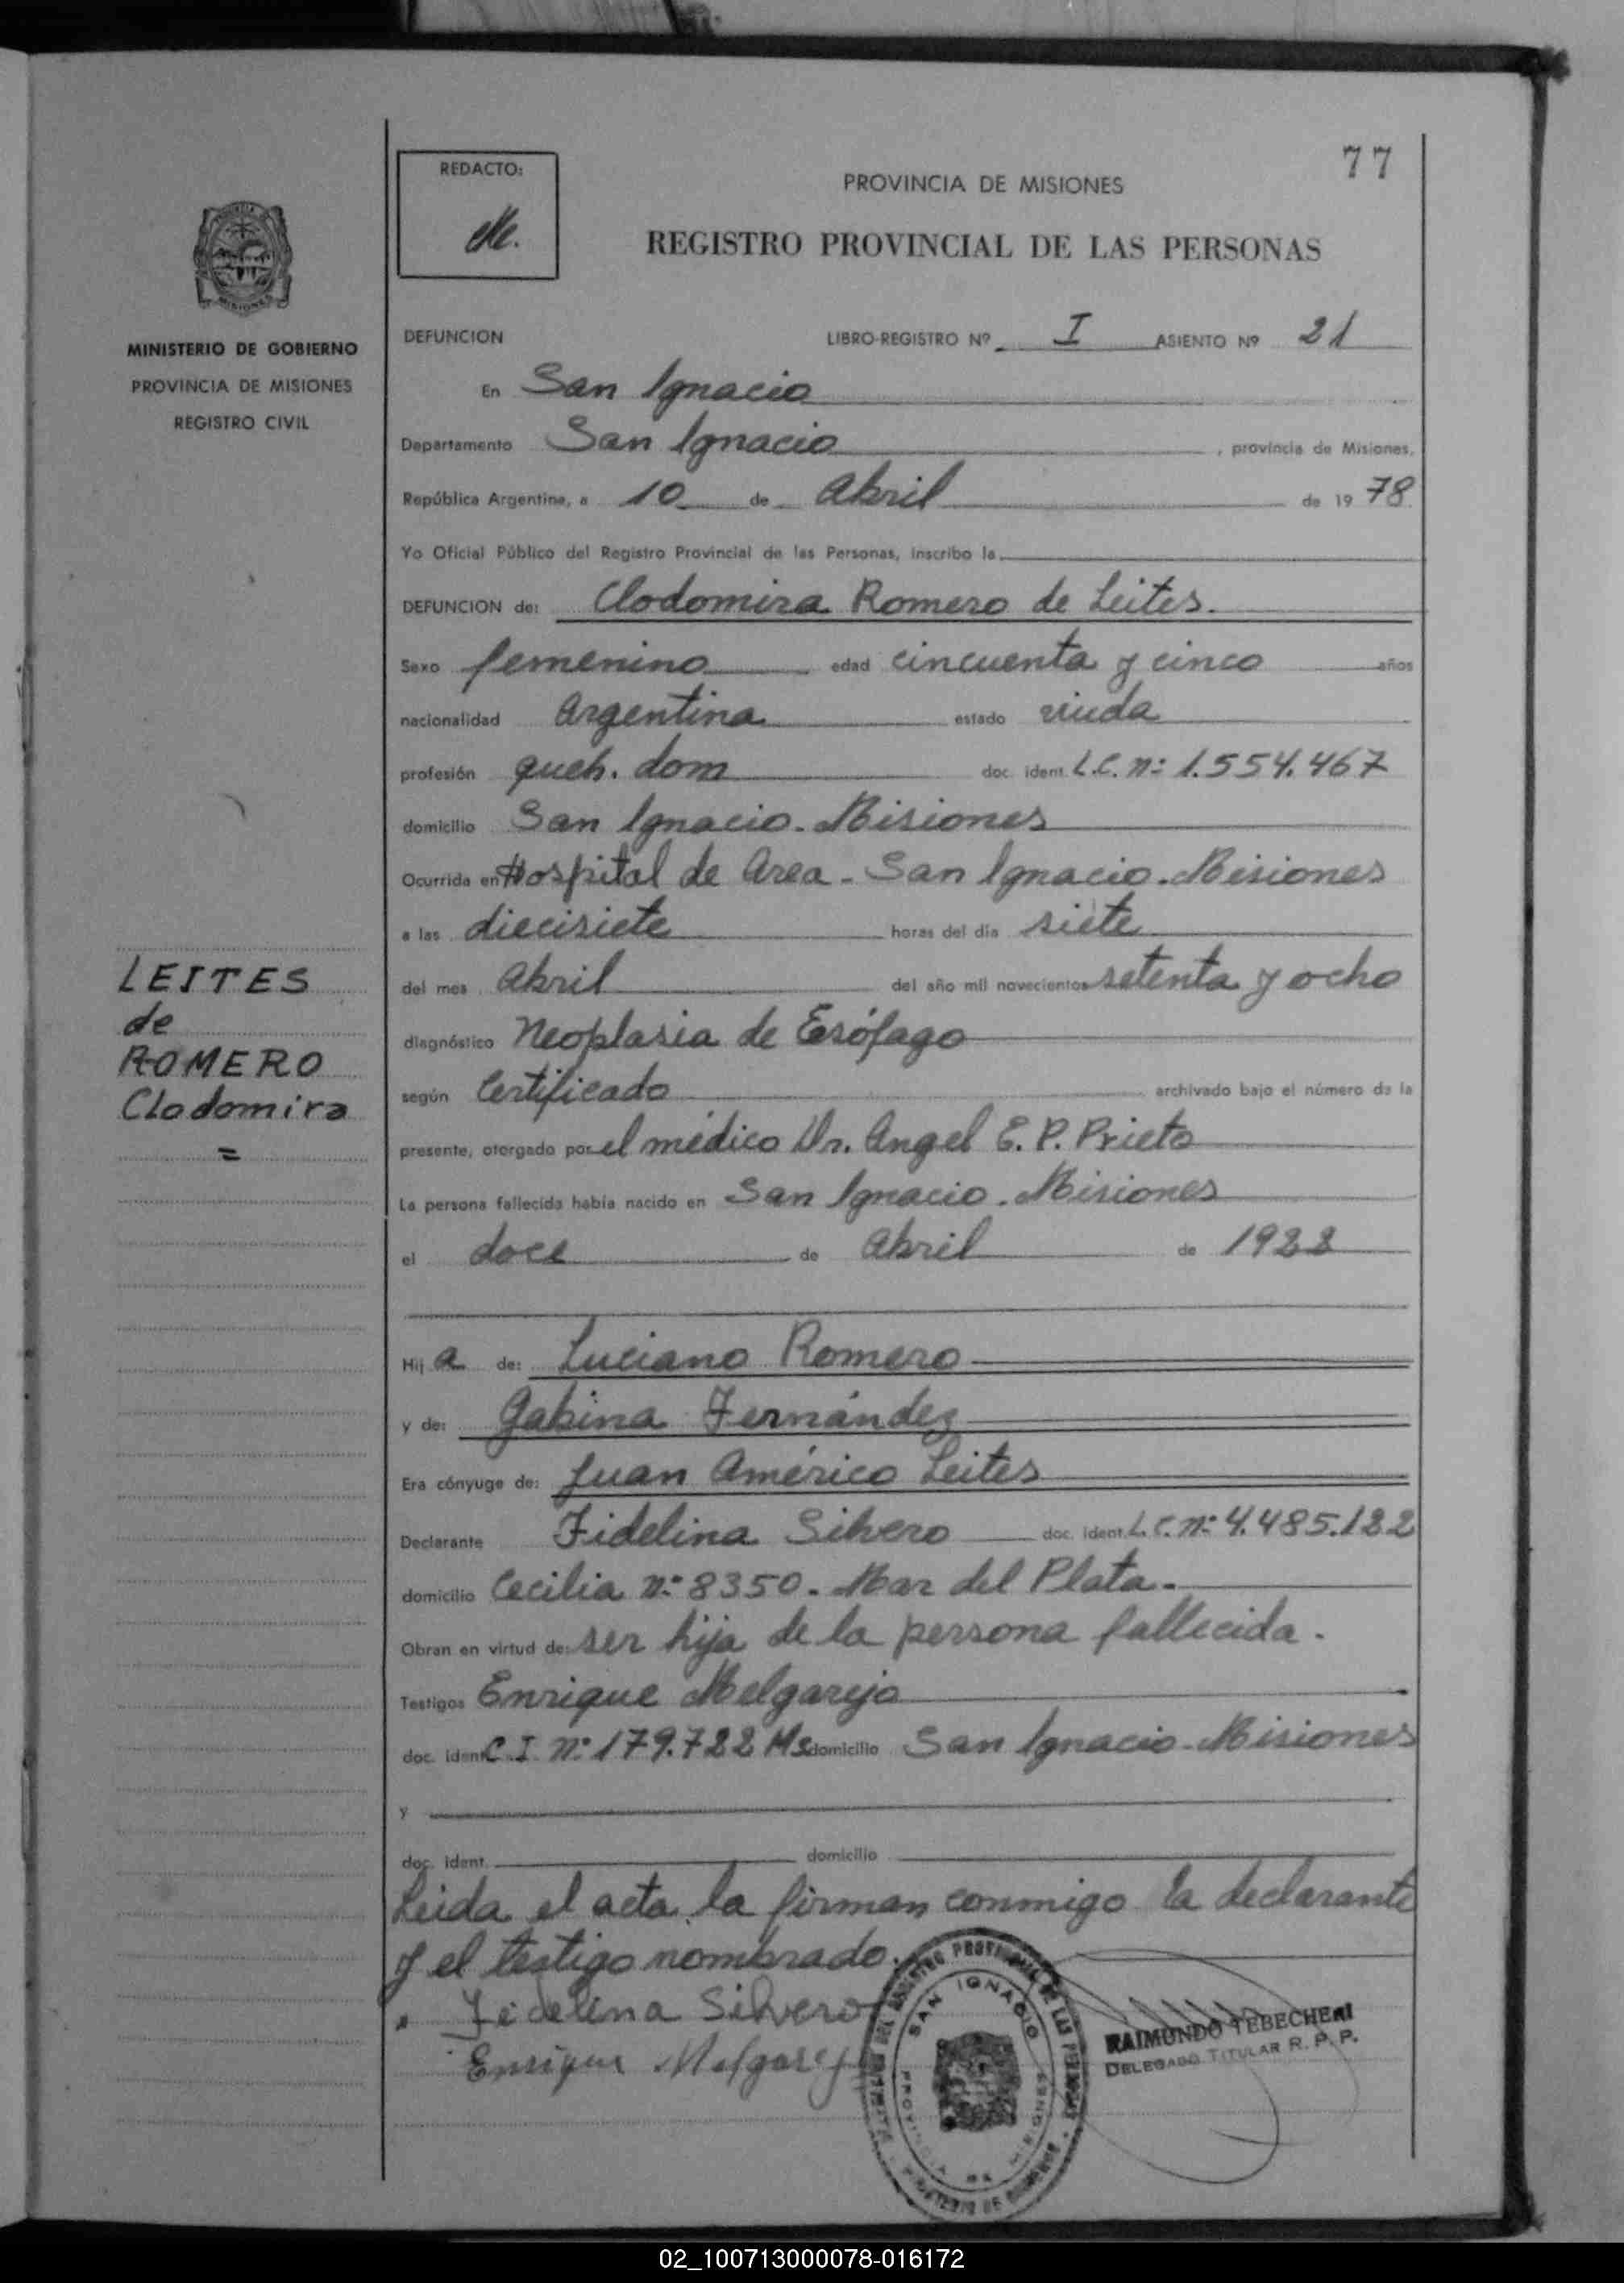 77
REDACTO:
PROVINCIA DE MISIONES
REGISTRO PROVINCIAL DE LAS PERSONAS
MISIONES
MINISTERIO DE GOBIERNO
PROVINCIA DE MISIONES
REGISTRO CIVIL
DEFUNCION LIBRO-REGISTRO Nº I ASIENTO Nº 21
En San Ignacio
Departamento San Ignacio, provincia de Misiones,
República Argentina, a 10 de Abril de 19 78
Yo Oficial Público del Registro Provincial de las Personas, inscribo la
DEFUNCION de: Clodomira Romero de Leites.
Sexo femenino edad cincuenta y cinco años
nacionalidad Argentina estado viuda
profesión queh. dom doc. ident. L.C. nº 1.554.467
domicilio San Ignacio - Misiones
Ocurrida en Hospital de Area - San Ignacio - Misiones
a las diecisiete horas del día siete
del mes Abril del año mil novecientos setenta y ocho
diagnóstico Neoplasia de Esófago
según Certificado archivado bajo el número de la
presente, otorgado por el médico Dr. Angel E. P. Prieto
La persona fallecida había nacido en San Ignacio - Misiones
el doce de Abril de 1922
Hij a de: Luciano Romero
y de: Gabina Fernández
Era cónyuge de: Juan Américo Leites
Declarante Fidelina Silvero doc. ident. L.C. nº 4.485.122
domicilio Cecilia nº 8350 - Mar del Plata -
Obran en virtud de: ser hija de la persona fallecida.
Testigos Enrique Melgarejo
doc. ident. C.I. nº 179.722 Ms domicilio San Ignacio - Misiones
y
doc. ident. domicilio
Leida el acta, la firman conmigo la declarante
y el testigo nombrado.
Fidelina Silvero
Enrique Melgarejo
LEITES
de
ROMERO
Clodomira
=
SAN IGNACIO
PROVINCIA DE MISIONES
RAIMUNDO TEBECHERI
DELEGADO TITULAR R. P. P.
02_100713000078-016172